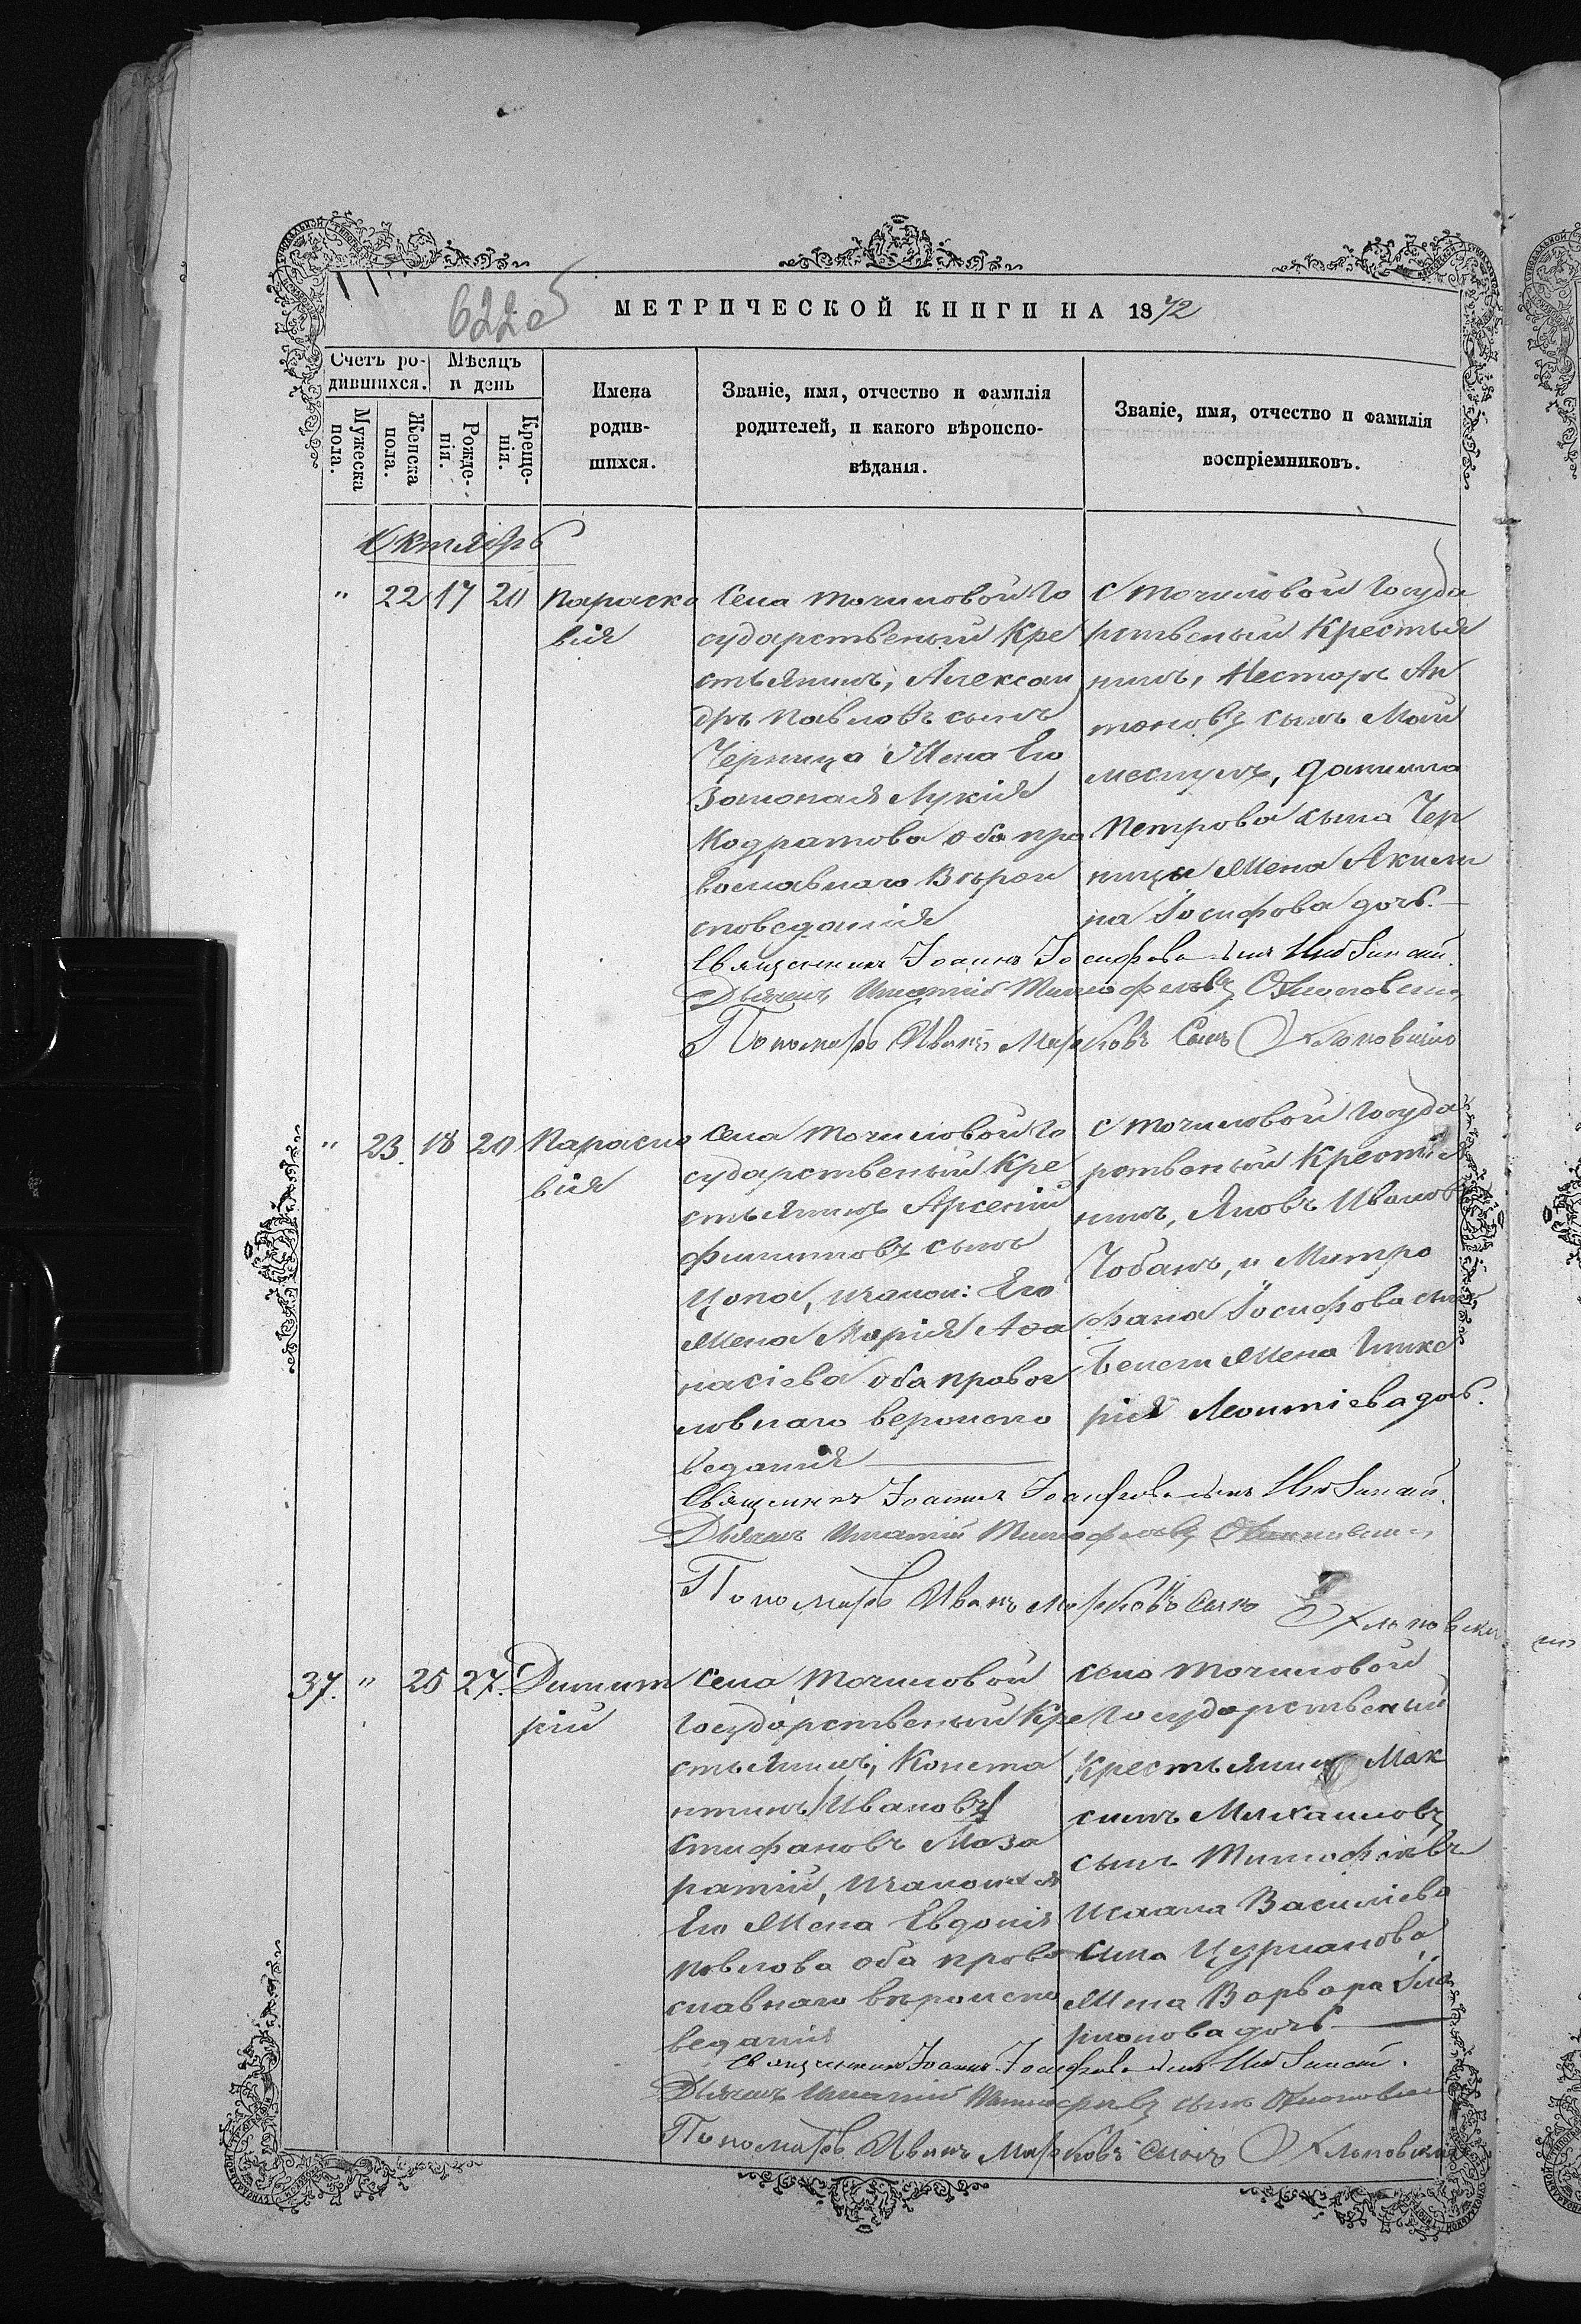 622об
МЕТРИЧЕСКОЙ КНИГИ НА 1872
Счетъ ро-
дившихся.
Мужеска
пола.
Женска
пола.
Мѣсяцъ
и день
Рожде-
нія.
Креще-
нія.
Имена
родив-
шихся.
Званіе, имя, отчество и фамилія
родителей, и какого вѣроиспо-
вѣданія.
Званіе, имя, отчество и фамилія
воспріемниковъ.
Октябрь
" 22 17 20
Параске
вія
Села Точиловой Го
сударственый Кре
стьянинъ, Алексан
дръ Павловъ сынъ
Черница Жена Его
Законая Лукія
Кодратова оба пра
вославнаго Вѣрои
споведанія
С Точиловой Госуда
рственый Крестья
нинъ, Несторъ Ан
тоновъ сынъ
Данила
Петрова сына Чер
ницы Жена Акили
на Іосифова дочь.
Священникъ Іоаннъ Іосифовъ сынъ
Дьячекъ Игнатій
Пономарь Иванъ Марковъ Сынъ
" 23. 18 20
Параске
вія
Села Точиловой Го
сударственый Кре
стьянинъ Арсеній
Филиповъ сынъ
Цопа, изакон: Его
Жена Марія Афа
насіева оба правос
лавнаго вероиспо
веданія
С Точиловой Госуда
рственый Крестья
нинъ, Яковъ Ивановъ
Чобанъ, и Митро
фана Іосифова сына
Жена Глике
рія Леонтіева дочь.
Священникъ Іоаннъ Іосифовъ сынъ
Дьячекъ Игнатій
Пономарь Иванъ Марковъ Сынъ
37. " 25 27.
Димит
рій
Села Точиловой
Государственый Кре
стьянинъ, Конста
нтинъ Ивановъ
Стифановъ Маза
ратій, изаконая
Его Жена Евдокія
Павлова оба право
славнаго вѣроиспо
веданія
Село Точиловой
Государственый
Крестьянинъ Мак
симъ Михаиловъ
сынъ Тимофіевъ
Исаака Василіева
сына Цурканова
Жена Варвара Ила
ріонова дочь
Священникъ Іоаннъ Іосифовъ сынъ
Дьячекъ Игнатій
Пономарь Иванъ Марковъ Сынъ